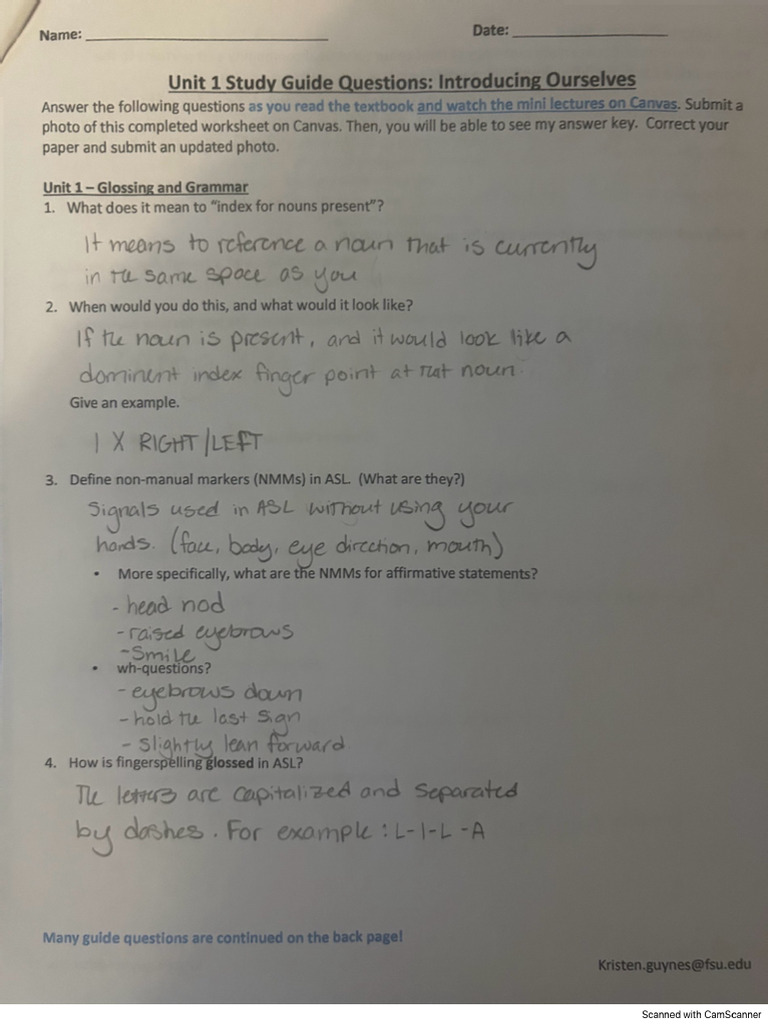 Name: ______________________ Date: ______________
Unit 1 Study Guide Questions: Introducing Ourselves
Answer the following questions as you read the textbook and watch the mini lectures on Canvas. Submit a
photo of this completed worksheet on Canvas. Then, you will be able to see my answer key. Correct your
paper and submit an updated photo.
Unit 1 – Glossing and Grammar
1. What does it mean to "index for nouns present"?
It means to reference a noun that is currently
in the same space as you
2. When would you do this, and what would it look like?
If the noun is present, and it would look like a
dominent index finger point at that noun.
Give an example.
I X RIGHT/LEFT
3. Define non-manual markers (NMMs) in ASL. (What are they?)
Signals used in ASL without using your
hands. (face, body, eye direction, mouth)
• More specifically, what are the NMMs for affirmative statements?
- head nod
- raised eyebrows
- Smile
• wh-questions?
- eyebrows down
- hold the last sign
- slightly lean forward.
4. How is fingerspelling glossed in ASL?
The letters are capitalized and separated
by dashes. For example: L-I-L-A
Many guide questions are continued on the back page!
Kristen.guynes@fsu.edu
Scanned with CamScanner